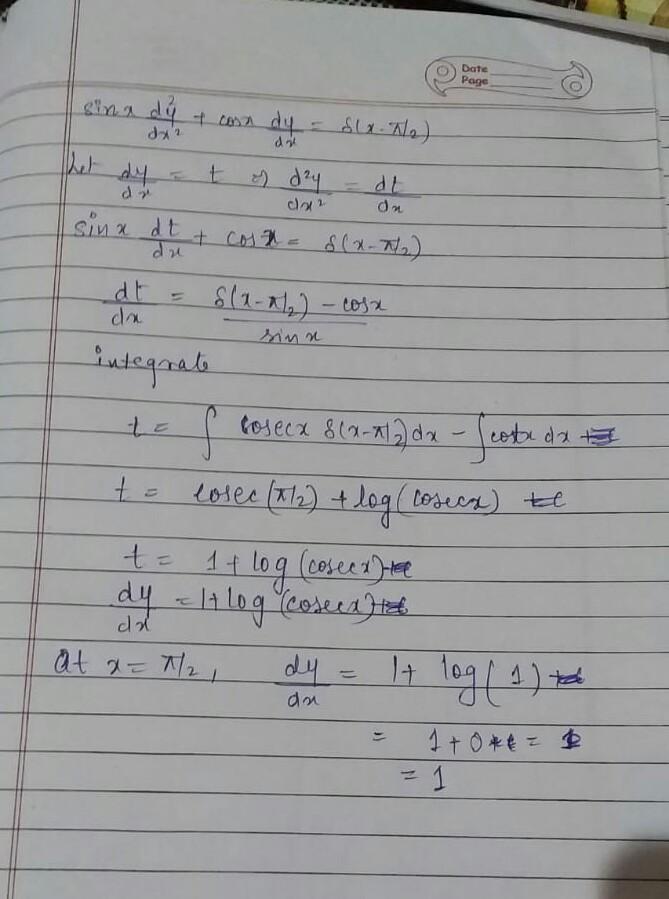 Date
Page
sin x d²y/dx² + cosx dy/dx = δ(x-π/2)
Let dy/dx = t ⇒ d²y/dx² = dt/dx
sin x dt/dx + cos x = δ(x-π/2)
dt/dx = δ(x-π/2) - cosx / sin x
integrate
t = ∫ cosecx δ(x-π/2)dx - ∫cotx dx
t = cosec(π/2) + log(cosecx)
t = 1 + log(cosecx)
dy/dx = 1+log(cosecx)
At x = π/2, dy/dx = 1+ log(1)
= 1+0 = 1
= 1